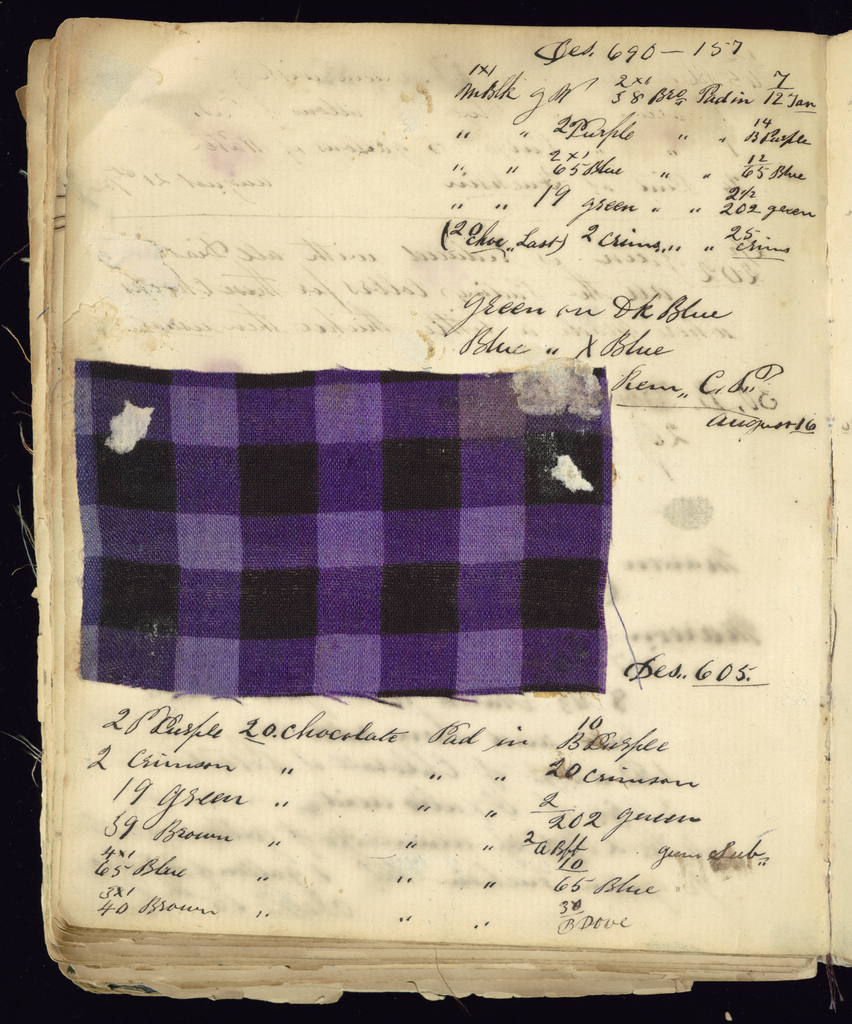 Des. 690 — 157
1x1 2x1 7
M Blk g W 58 Bro Pad in 12 Tan
" " 2 P Purple " " 14 B Purple
" " 2x1 65 Blue " " 12 65 Blue
" " 19 green " " 2 1/2 202 green
(20 Choc " Last) 2 Crims " " 25 Crims
Green on Dk Blue
Blue " X Blue
Rem" C. P.
August 16
Des. 605.
2 P Purple 20. Chocolate Pad in 10 B Purple
2 Crimson " " " 20 Crimson
19 Green " " " 2 202 green
39 Brown " " 2 a Bff gum Sub"
4x1 65 Blue " " " 10 65 Blue
3x1 40 Brown " " " 30 B Dove